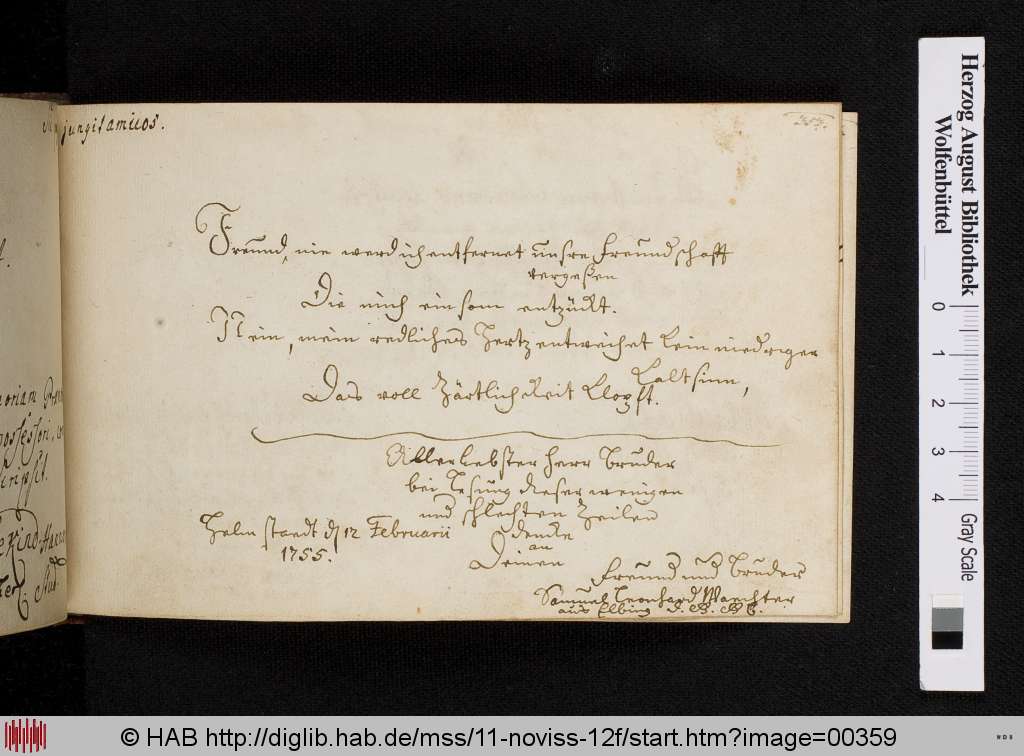 jungit amicos.
257.
Freund, nie werd ich entfernet unsre Freundschafft
vergeßen
Die mich einsam entzückt.
Nein, mein redliches Hertz entweihet kein niedriger
Kaltsinn,
Das voll Zärtlichkeit klopft.
Allerliebster Herr Bruder
bei Lesung dieser wenigen
und schlechten Zeilen
Helmstaedt d 12 Februarii
1755.
dencke
an
Deinen
Freund und Bruder
Samuel Leonhard Waechter
aus Elbing
possessori,
Herzog August Bibliothek
Wolfenbüttel
0 1 2 3 4 Gray Scale
© HAB http://diglib.hab.de/mss/11-noviss-12f/start.htm?image=00359